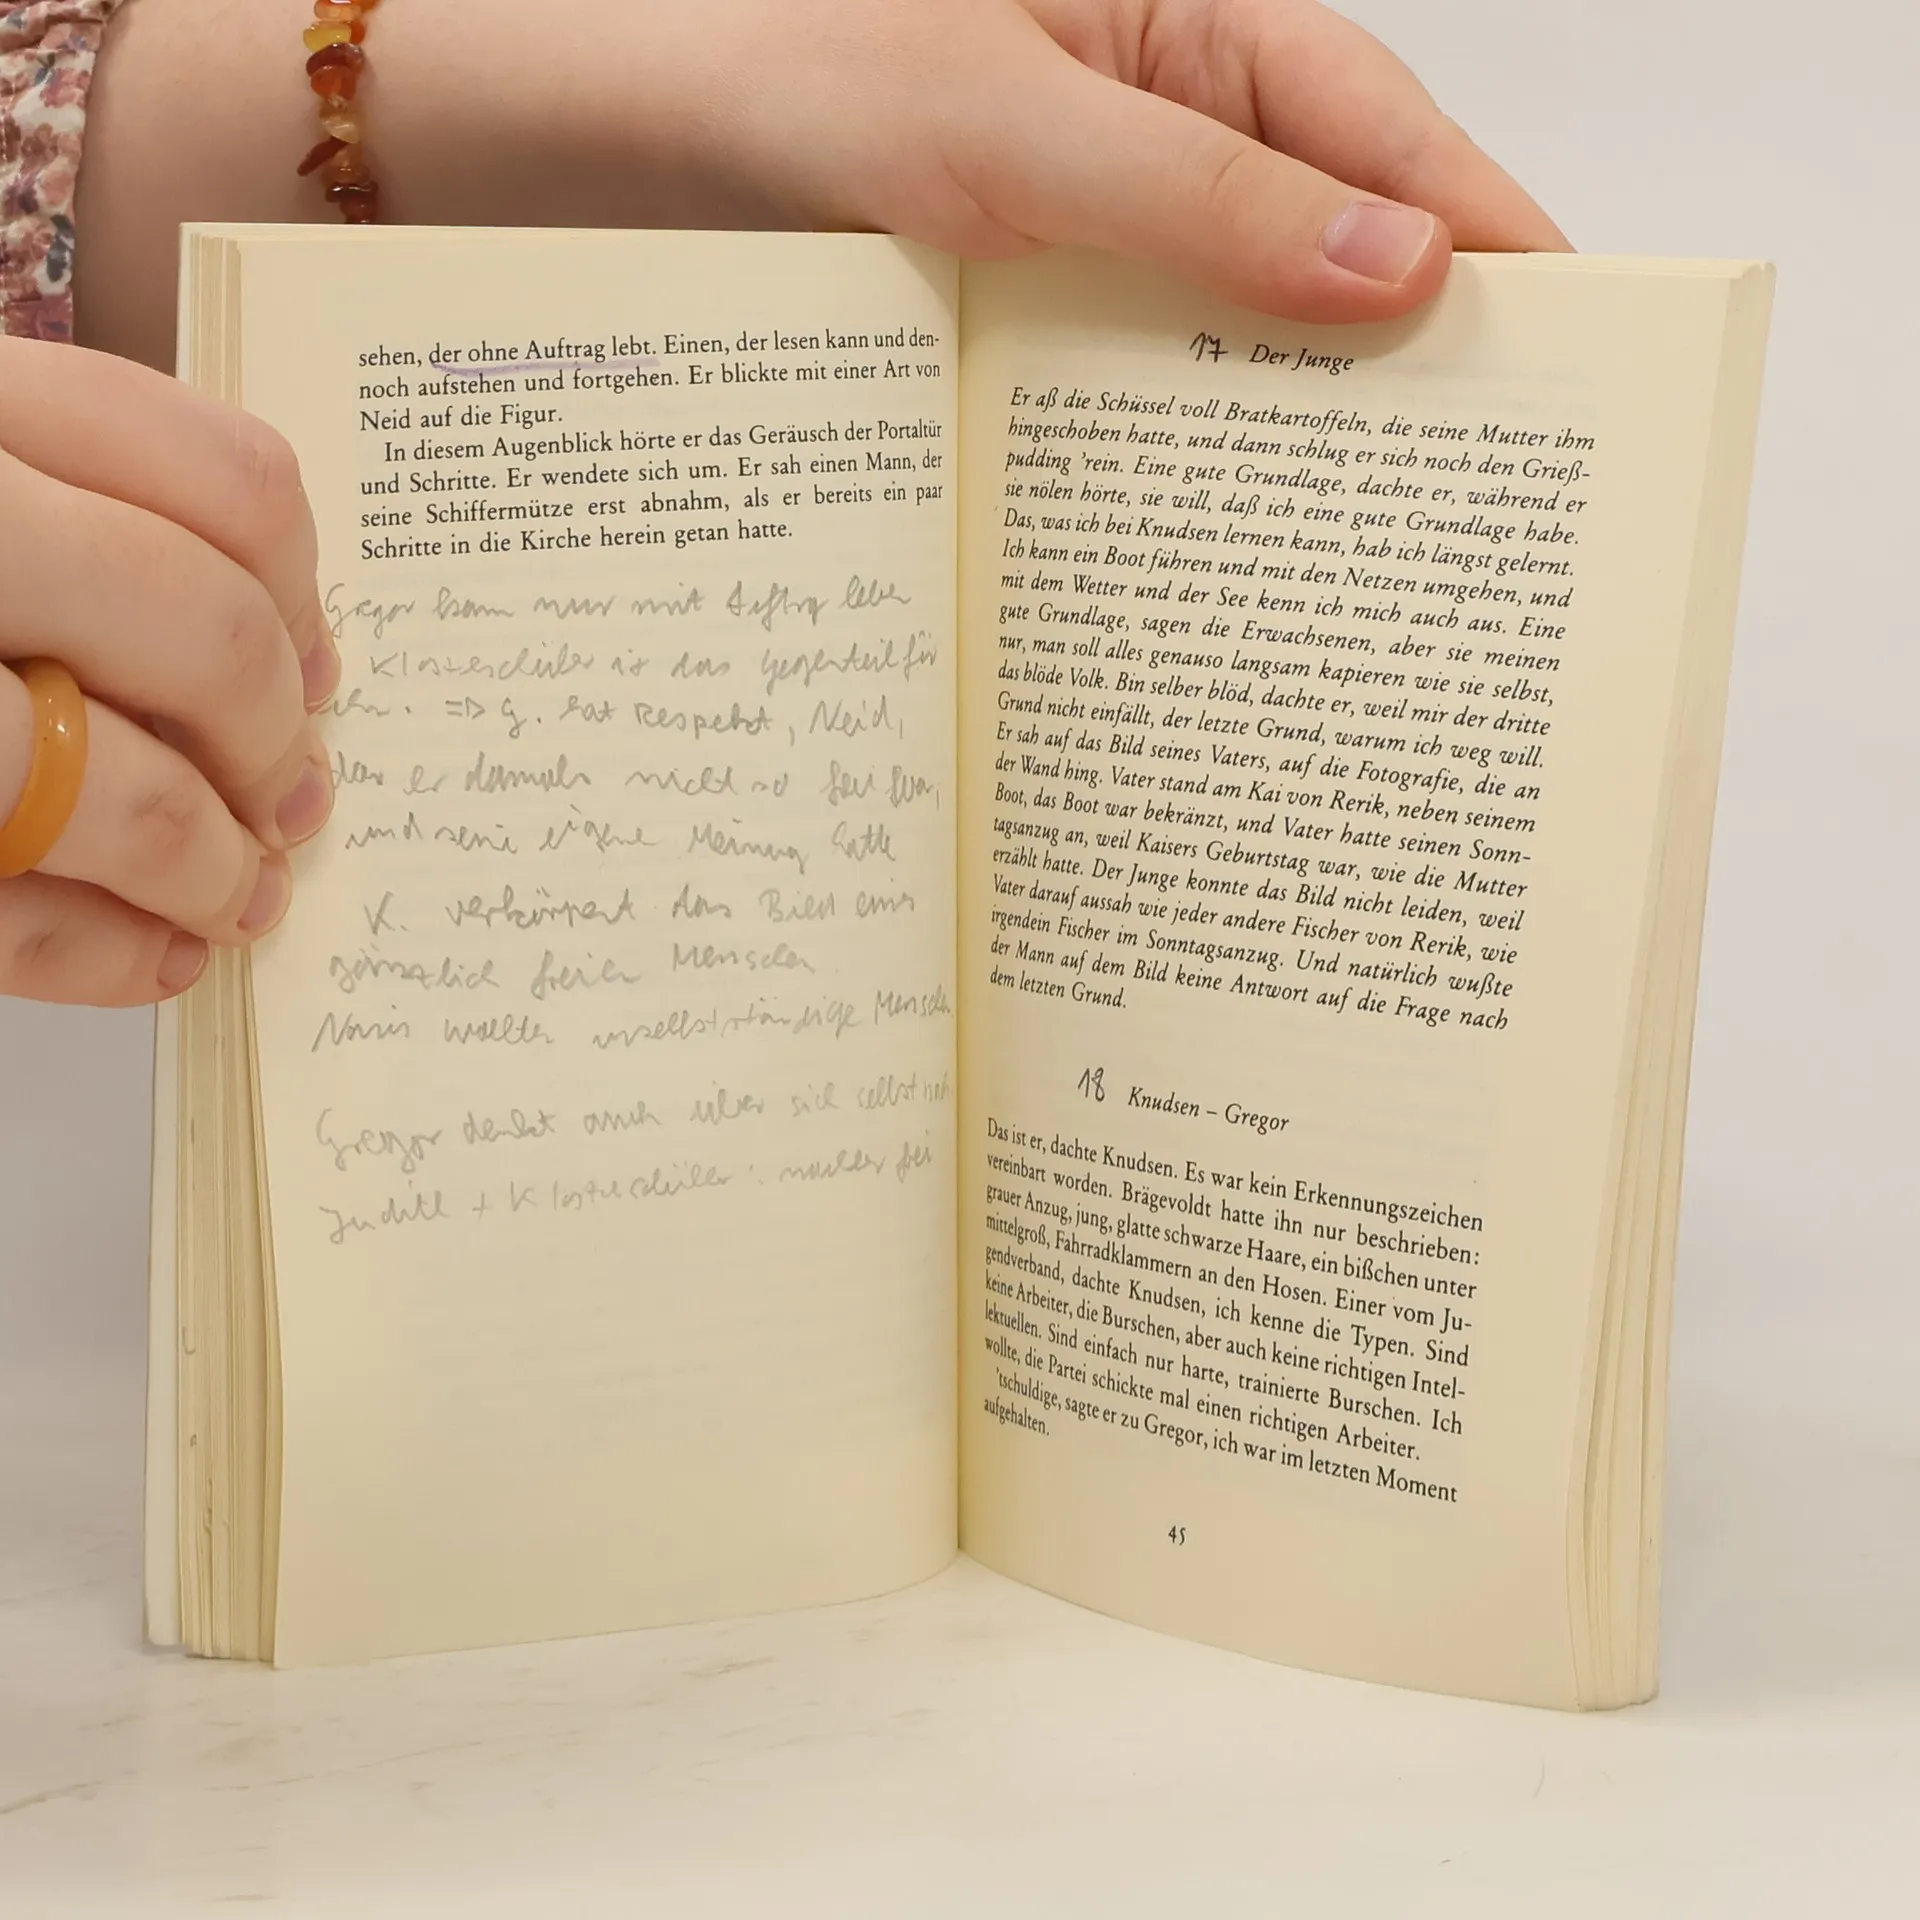 sehen, der ohne Auftrag lebt. Einen, der lesen kann und den-
noch aufstehen und fortgehen. Er blickte mit einer Art von
Neid auf die Figur.
In diesem Augenblick hörte er das Geräusch der Portaltür
und Schritte. Er wendete sich um. Er sah einen Mann, der
seine Schiffermütze erst abnahm, als er bereits ein paar
Schritte in die Kirche herein getan hatte.
Gregor kann nur mit Auftrag leben
Klosterschüler ist das Gegenteil für
ihn. => G. hat Respekt, Neid,
das er damals nicht so frei war,
und seine eigene Meinung hatte
K. verkörpert das Bild eines
gänzlich freien Menschen.
Nazis wollten unselbstständige Menschen
Gregor denkt auch über sich selbst nach
Judith + Klosterschüler: frei
17 Der Junge
Er aß die Schüssel voll Bratkartoffeln, die seine Mutter ihm
hingeschoben hatte, und dann schlug er sich noch den Grieß-
pudding 'rein. Eine gute Grundlage, dachte er, während er
sie nölen hörte, sie will, daß ich eine gute Grundlage habe.
Das, was ich bei Knudsen lernen kann, hab ich längst gelernt.
Ich kann ein Boot führen und mit den Netzen umgehen, und
mit dem Wetter und der See kenn ich mich auch aus. Eine
gute Grundlage, sagen die Erwachsenen, aber sie meinen
nur, man soll alles genauso langsam kapieren wie sie selbst,
das blöde Volk. Bin selber blöd, dachte er, weil mir der dritte
Grund nicht einfällt, der letzte Grund, warum ich weg will.
Er sah auf das Bild seines Vaters, auf die Fotografie, die an
der Wand hing. Vater stand am Kai von Rerik, neben seinem
Boot, das Boot war bekränzt, und Vater hatte seinen Sonn-
tagsanzug an, weil Kaisers Geburtstag war, wie die Mutter
erzählt hatte. Der Junge konnte das Bild nicht leiden, weil
Vater darauf aussah wie jeder andere Fischer von Rerik, wie
irgendein Fischer im Sonntagsanzug. Und natürlich wußte
der Mann auf dem Bild keine Antwort auf die Frage nach
dem letzten Grund.
18 Knudsen – Gregor
Das ist er, dachte Knudsen. Es war kein Erkennungszeichen
vereinbart worden. Brägevoldt hatte ihn nur beschrieben:
grauer Anzug, jung, glatte schwarze Haare, ein bißchen unter
mittelgroß, Fahrradklammern an den Hosen. Einer vom Ju-
gendverband, dachte Knudsen, ich kenne die Typen. Sind
keine Arbeiter, die Burschen, aber auch keine richtigen Intel-
lektuellen. Sind einfach nur harte, trainierte Burschen. Ich
wollte, die Partei schickte mal einen richtigen Arbeiter.
'tschuldige, sagte er zu Gregor, ich war im letzten Moment
aufgehalten.
45